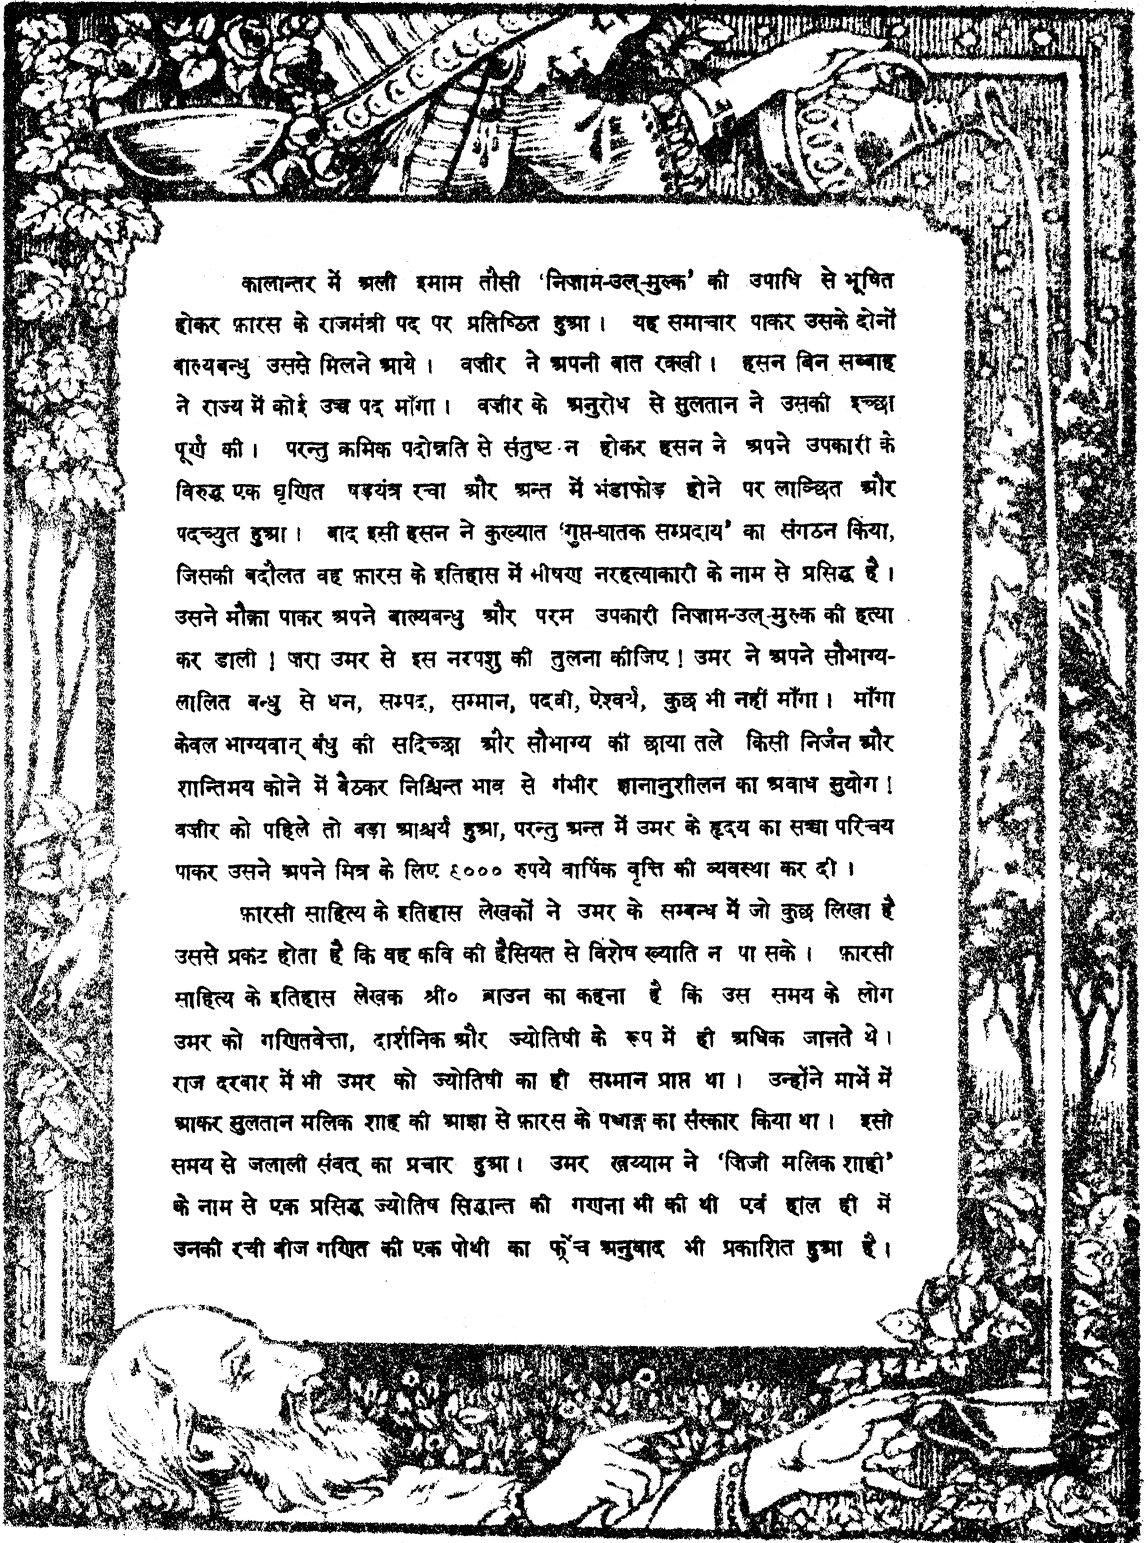 कालान्तर में अली इमाम तौसी 'निज़ाम-उल्-मुल्क' की उपाधि से भूषित
होकर फ़ारस के राजमंत्री पद पर प्रतिष्ठित हुआ। यह समाचार पाकर उसके दोनों
बाल्यबन्धु उससे मिलने आये। वज़ीर ने अपनी बात रक्खी। हसन बिन सब्बाह
ने राज्य में कोई उच्च पद माँगा। वज़ीर के अनुरोध से सुलतान ने उसकी इच्छा
पूर्ण की। परन्तु क्रमिक पदोन्नति से संतुष्ट न होकर हसन ने अपने उपकारी के
विरुद्ध एक घृणित षड़यंत्र रचा और अन्त में भंडाफोड़ होने पर लाञ्छित और
पदच्युत हुआ। बाद इसी हसन ने कुख्यात 'गुप्त-घातक सम्प्रदाय' का संगठन किया,
जिसकी बदौलत वह फ़ारस के इतिहास में भीषण नरहत्याकारी के नाम से प्रसिद्ध है।
उसने मौक़ा पाकर अपने बाल्यबन्धु और परम उपकारी निज़ाम-उल्-मुल्क की हत्या
कर डाली! ज़रा उमर से इस नरपशु की तुलना कीजिए! उमर ने अपने सौभाग्य-
लालित बन्धु से धन, सम्पद, सम्मान, पदवी, ऐश्वर्य, कुछ भी नहीं माँगा। माँगा
केवल भाग्यवान् बंधु की सदिच्छा और सौभाग्य की छाया तले किसी निर्जन और
शान्तिमय कोने में बैठकर निश्चिन्त भाव से गंभीर ज्ञानानुशीलन का अबाध सुयोग!
वज़ीर को पहिले तो बड़ा आश्चर्य हुआ, परन्तु अन्त में उमर के हृदय का सच्चा परिचय
पाकर उसने अपने मित्र के लिए ९००० रुपये वार्षिक वृत्ति की व्यवस्था कर दी।
फ़ारसी साहित्य के इतिहास लेखकों ने उमर के सम्बन्ध में जो कुछ लिखा है
उससे प्रकट होता है कि वह कवि की हैसियत से विशेष ख्याति न पा सके। फ़ारसी
साहित्य के इतिहास लेखक श्री० ब्राउन का कहना है कि उस समय के लोग
उमर को गणितवेत्ता, दार्शनिक और ज्योतिषी के रूप में ही अधिक जानते थे।
राज दरबार में भी उमर को ज्योतिषी का ही सम्मान प्राप्त था। उन्होंने मार्भे में
आकर सुलतान मलिक शाह की आज्ञा से फ़ारस के पञ्चाङ्ग का संस्कार किया था। इसी
समय से जलाली संवत् का प्रचार हुआ। उमर ख़य्याम ने 'ज़िजी मलिक शाही'
के नाम से एक प्रसिद्ध ज्योतिष सिद्धान्त की गणना भी की थी एवं हाल ही में
उनकी रची बीज गणित की एक पोथी का फ्रेंच अनुवाद भी प्रकाशित हुआ है।